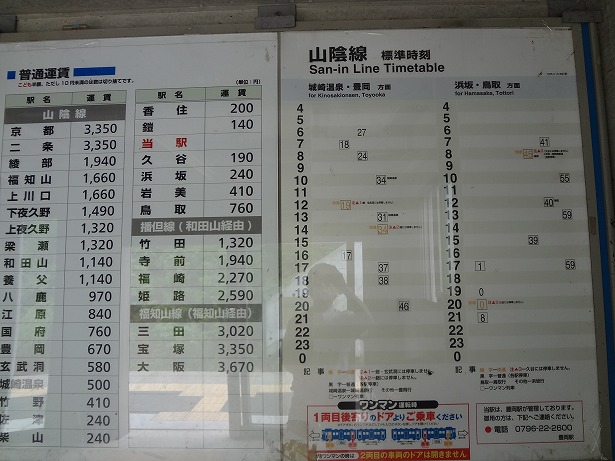 普通運賃
こども半額、ただし10円未満のは数は切り捨てです。
(単位:円)
駅名 運賃
山陰線
京都 3,350
二条 3,350
綾部 1,940
福知山 1,660
上川口 1,660
下夜久野 1,490
上夜久野 1,320
梁瀬 1,320
和田山 1,140
養父 1,140
八鹿 970
江原 840
国府 760
豊岡 670
玄武洞 580
城崎温泉 500
竹野 410
佐津 240
柴山 240
駅名 運賃
香住 200
鎧 140
当駅
久谷 190
浜坂 240
岩美 410
鳥取 760
播但線(和田山経由)
竹田 1,320
寺前 1,940
福崎 2,270
姫路 2,590
福知山線(福知山経由)
三田 3,020
宝塚 3,350
大阪 3,670
山陰線 標準時刻
San-in Line Timetable
城崎温泉・豊岡 方面
for Kinosakionsen, Toyooka
4
5
6 27
7 18
8 24
9
10 34
11
12 19
13 31
14
15
16 17
17 37
18 38
19
20 46
21
22
23
0
浜坂・鳥取 方面
for Hamasaka, Tottori
4
5
6
7 41
8
9
10 55
11
12 40
13 59
14
15 39
16
17 1 59
18
19 0
20 0
21 8
22
23
0
記事
記事
ワンマン運転線
1両目後ろのドアよりご乗車ください
ワンマンの時は 2両目の車両のドアは開きません
当駅は、豊岡駅が管理しております。
御用の方は、下記へご連絡ください。
● 電話 0796-22-2600
豊岡駅